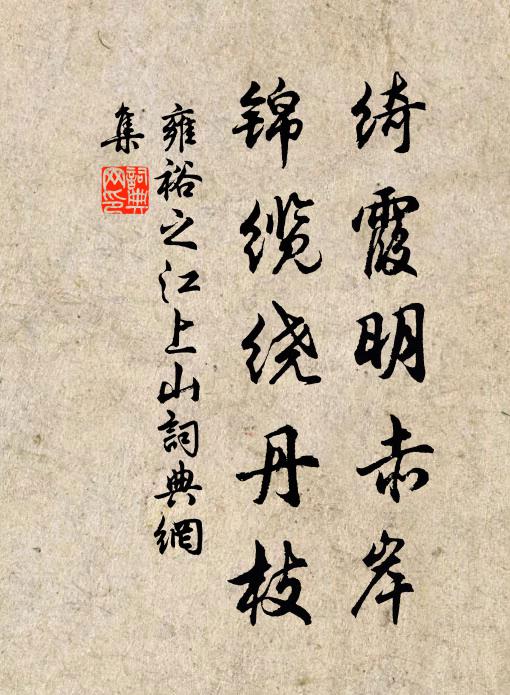 绮霞明赤岸
锦缆绕丹枝
雍裕之江上山詞典網
集
詞典
网印